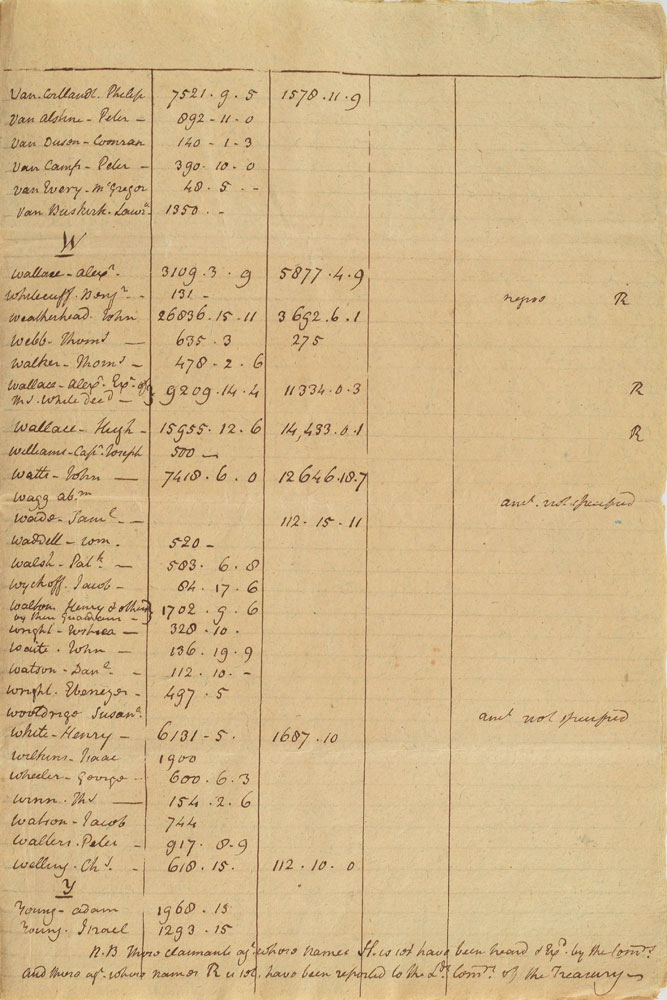 Van Cortlandt. Philip 7521 . 9 . 5 1578 . 11 . 9
Van Alstine - Peter - 892 - 11 . 0
Van Dusen - Coonrad 140 - 1 - 3
Van Camp - Peter - 390 . 10 . 0
Van Every - McGregor 48 . 5 . - -
Van Buskirk - Lawr. 1350 . -
W
Wallace - Alexr. 3109 . 3 . 9 5877 . 4 . 9
Whitecuff. Benjn. - 131 - negroe R
Weatherhead. John 26836 . 15 . 11 3692 . 6 . 1
Webb - Thoms — 635 . 3 275
Walker - Thoms - 478 - 2 . 6
Wallace - Alexr. Exr. of
Ms. White decd - } 9209 . 14 . 4 11334 . 0 . 3 R
Wallace - Hugh - 15955 . 12 . 6 14,433 . 0 . 1 R
Williams - Capt. Joseph 500 —
Watts - John — 7418 . 6 . 0 12646 . 18 . 7
Wagg abm amt. not specified
Wade - Saml. — 112 - 15 - 11
Waddell - Wm. 520 -
Walsh - Patk. - 583 . 6 . 8
Wyckoff. Jacob - 84 . 17 . 6
Walton Henry & others
by their Guardians - } 1702 . 9 . 6
Wright - — 328 . 10 .
Waite . John — 136 . 19 . 9
Watson - Danl. - 112 . 10 . -
Wright. Ebenezer - 497 . 5
Wooldrige Susana. amt. not specified
White - Henry - 6131 - 5 . 1687 . 10
Wilkins - Isaac 1900
Wheeler - George - 600 . 6 . 3
Winn . Ths — 154 . 2 . 6
Watson - Jacob 744
Walters. Peter - 917 . 8 . 9
Welling. Chs. - 618 . 15 . 112 . 10 . 0
Y
Young - Adam 1968 . 13
Young. Israel 1293 . 15
N.B Those claimants agt. whose names H. is set have been heard & Exd. by the Comrs.
and those agt. whose names R is set, have been reported to the Lds. Comrs. of the Treasury —